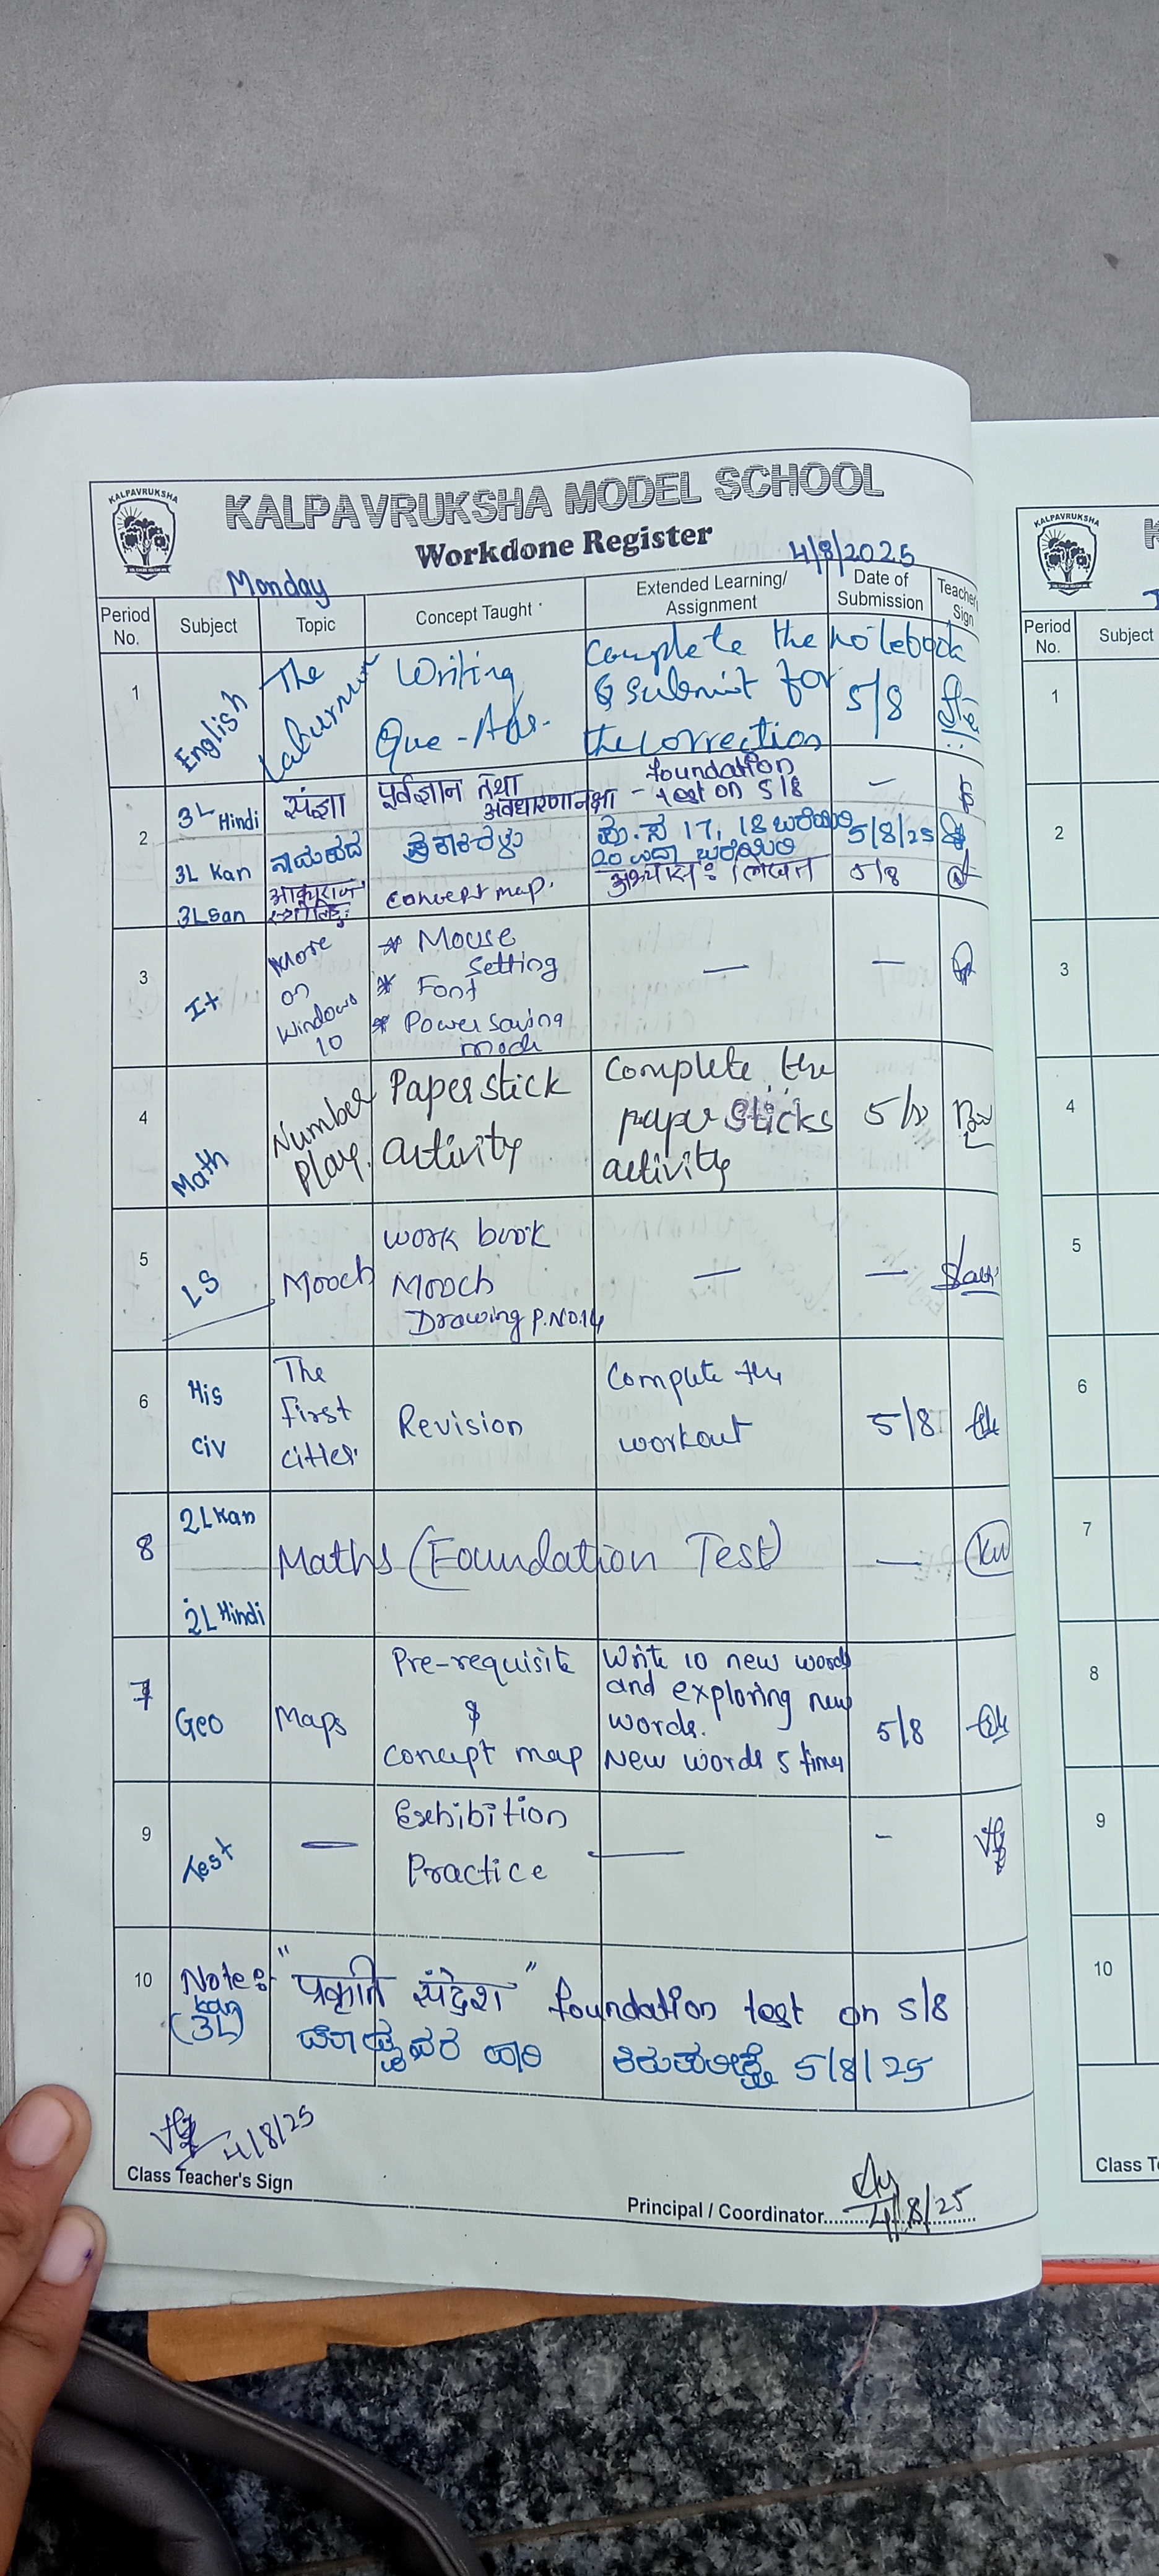 KALPAVRUKSHA
KALPAVRUKSHA MODEL SCHOOL
Workdone Register
Monday
4/8/2025
Period No.
Subject
Topic
Concept Taught
Extended Learning/ Assignment
Date of Submission
Teacher's Sign
1
English
The Laburnum
Writing
Que - Ans.
Complete the notebook
& submit for
the correction
5/8
2
3L Hindi
संज्ञा
पूर्वज्ञान तथा
अवधारणा नक्षा
foundation
- test on 5/8
-
3L Kan
ನಾಮಪದ
17, 18 ಬರೆಯಿರಿ
ಬರೆಯಿರಿ
5/8/25
3L San
concept map.
अभ्यासः लेखन
5/8
3
It
More
on
Windows
10
* Mouse
setting
* Font
* Power saving
mode
—
—
4
Math
Number
Play.
Paper stick
activity
Complete the
paper sticks
activity
5/8
5
LS
Mooch
work book
Mooch
Drawing P.No.14
—
—
6
His
Civ
The
first
cities.
Revision
Complete the
workout
5/8
8
2L Kan
2L Hindi
Maths (Foundation Test)
—
7
Geo
Maps
Pre-requisite
&
concept map
Write 10 new words
and exploring new
words.
New words 5 times
5/8
9
Test
—
Exhibition
Practice
—
-
10
Note:
"प्रकृति संदेश" foundation test on 5/8
Kan
(3L)
ಕಿರುಪರೀಕ್ಷೆ 5/8/25
4/8/25
Class Teacher's Sign
Principal / Coordinator
4/8/25
KALPAVRUKSHA
K
Period No.
Subject
1
2
3
4
5
6
7
8
9
10
Class T